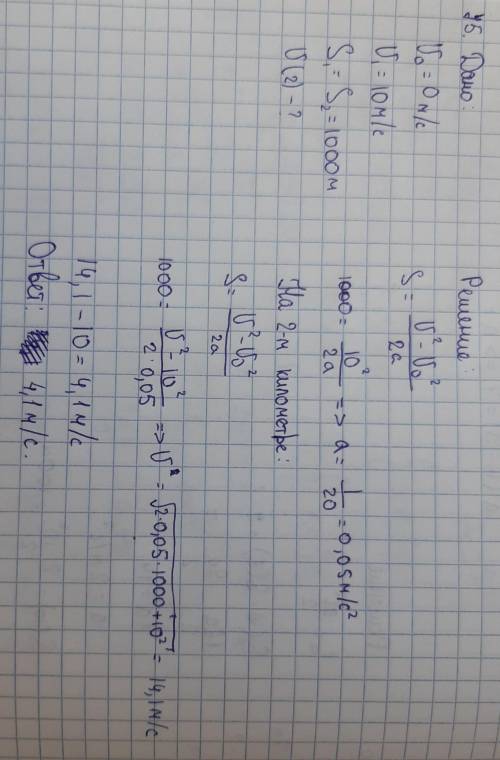 У5. Дано:
υ₀ = 0 м/с
υ₁ = 10 м/с
S₁ = S₂ = 1000 м
υ(2) - ?
Решение:
S = (υ² - υ₀²) / 2a
1000 = 10² / 2a => a = 1/20 = 0,05 м/с²
На 2-м километре:
S = (υ² - υ₀²) / 2a
1000 = (υ² - 10²) / (2·0,05) => υ = √(2·0,05·1000+10²) = 14,1 м/с
14,1 - 10 = 4,1 м/с
Ответ: 4,1 м/с.